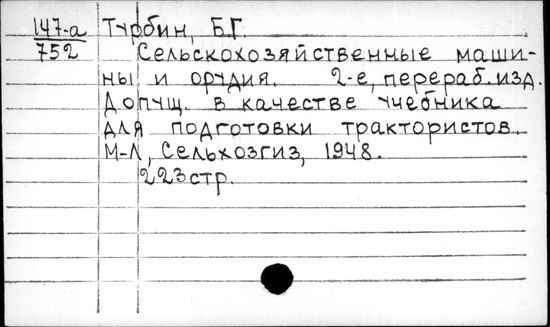 147-а Турбин, Б.Г.
752 Сельскохозяйственные маши-
ны и орудия. 2-е, перераб. изд.
Допущ. в качестве учебника
для подготовки трактористов.
М-Л, Сельхозгиз, 1948.
223стр.